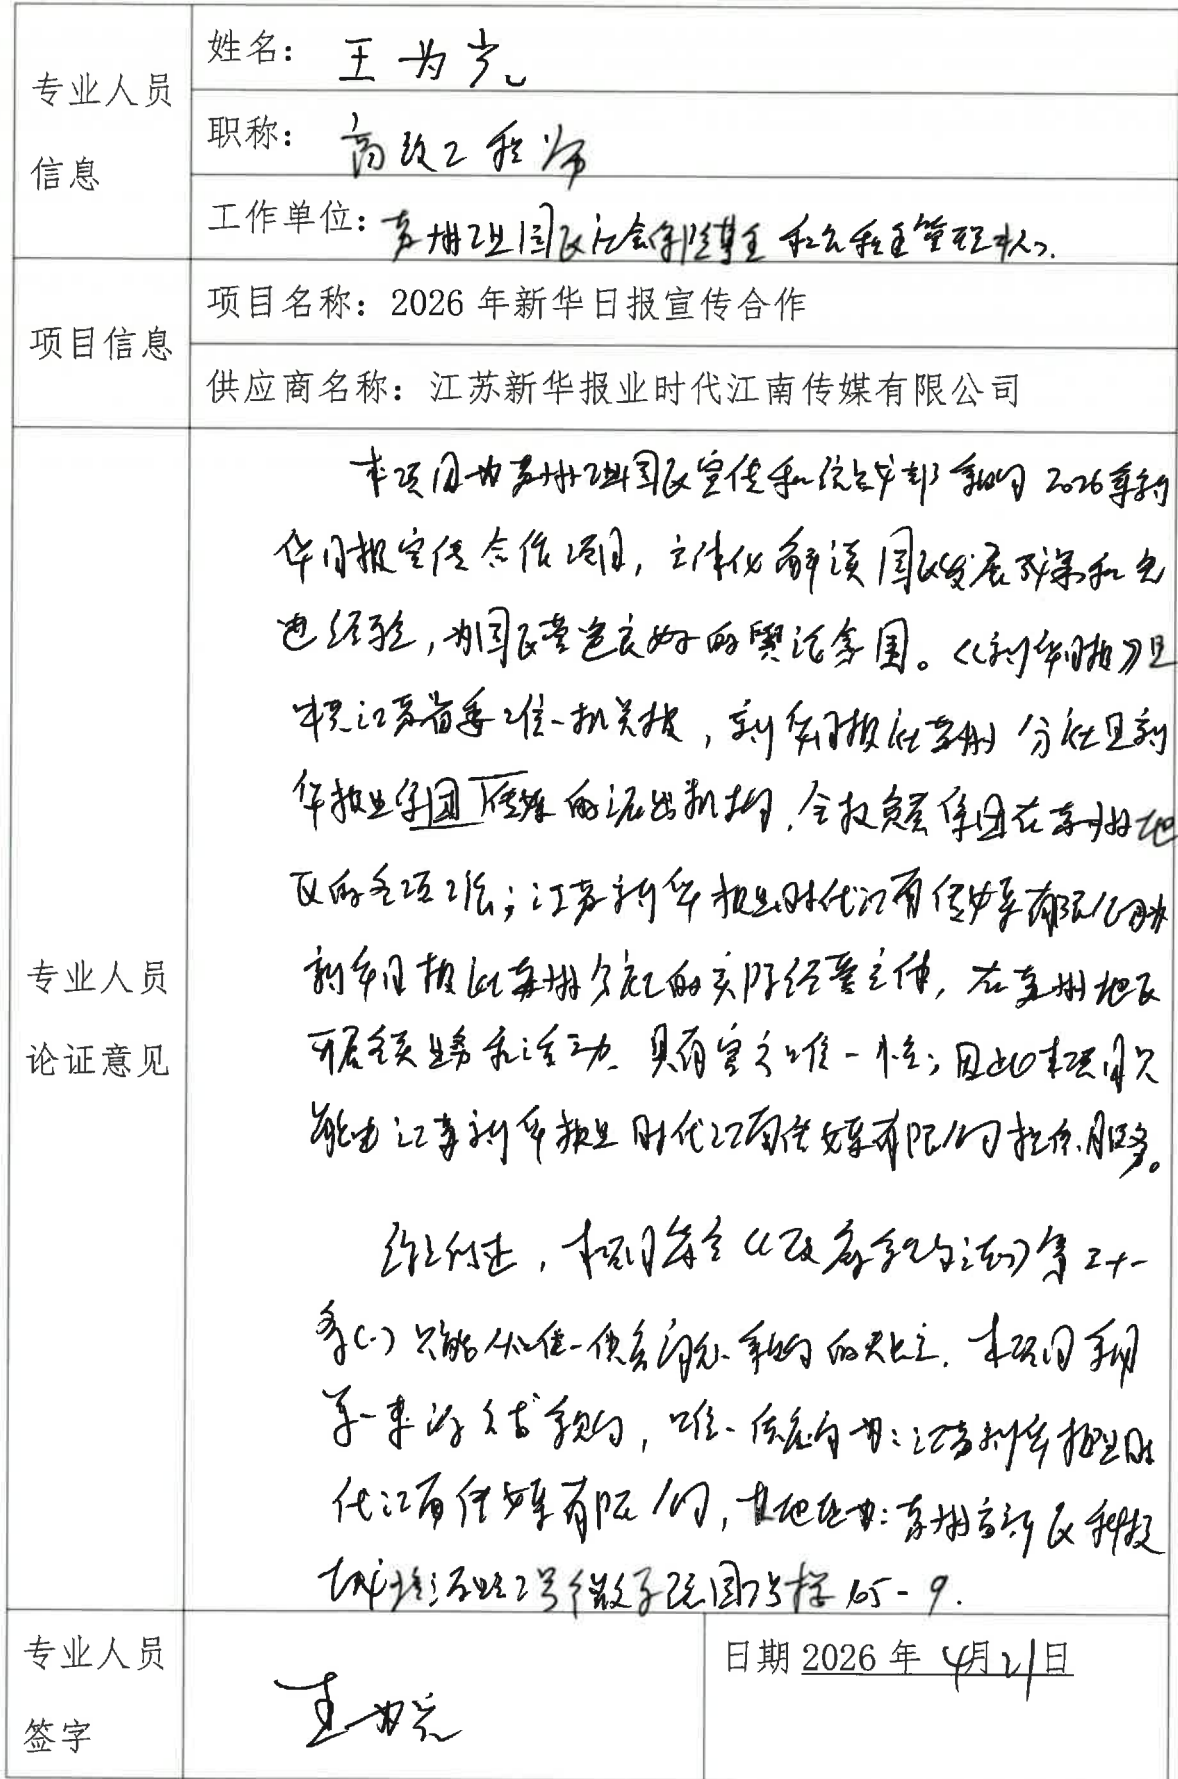 专业人员
信息
姓名： 王为光
职称： 高级工程师
工作单位：苏州工业园区社会保险基金和公积金管理中心
项目信息
项目名称：2026 年新华日报宣传合作
供应商名称：江苏新华报业时代江南传媒有限公司
专业人员
论证意见
本项目为苏州工业园区宣传和统战部采购 2026年新
华日报宣传合作项目，立体化解读园区发展成果和先
进经验，为园区营造良好的舆论氛围。《新华日报》是
中共江苏省委唯一机关报，新华日报社苏州分社是新
华报业集团 的派出机构，全权负责集团在苏州地
区的各项工作；江苏新华报业时代江南传媒有限公司为
新华日报社苏州分社的实际经营主体，在苏州地区
开展各类业务和活动，具有官方唯一性；因此本项目只
能由江苏新华报业时代江南传媒有限公司提供服务。
综上所述，本项目符合《政府采购法》第三十一
条（一）只能从唯一供应商处采购的规定，本项目采用
单一来源方式采购，唯一供应商为：江苏新华报业时
代江南传媒有限公司，其地址为：苏州高新区科技
城 2号 65-9.
专业人员
签字
王为光
日期 2026 年 4月21日